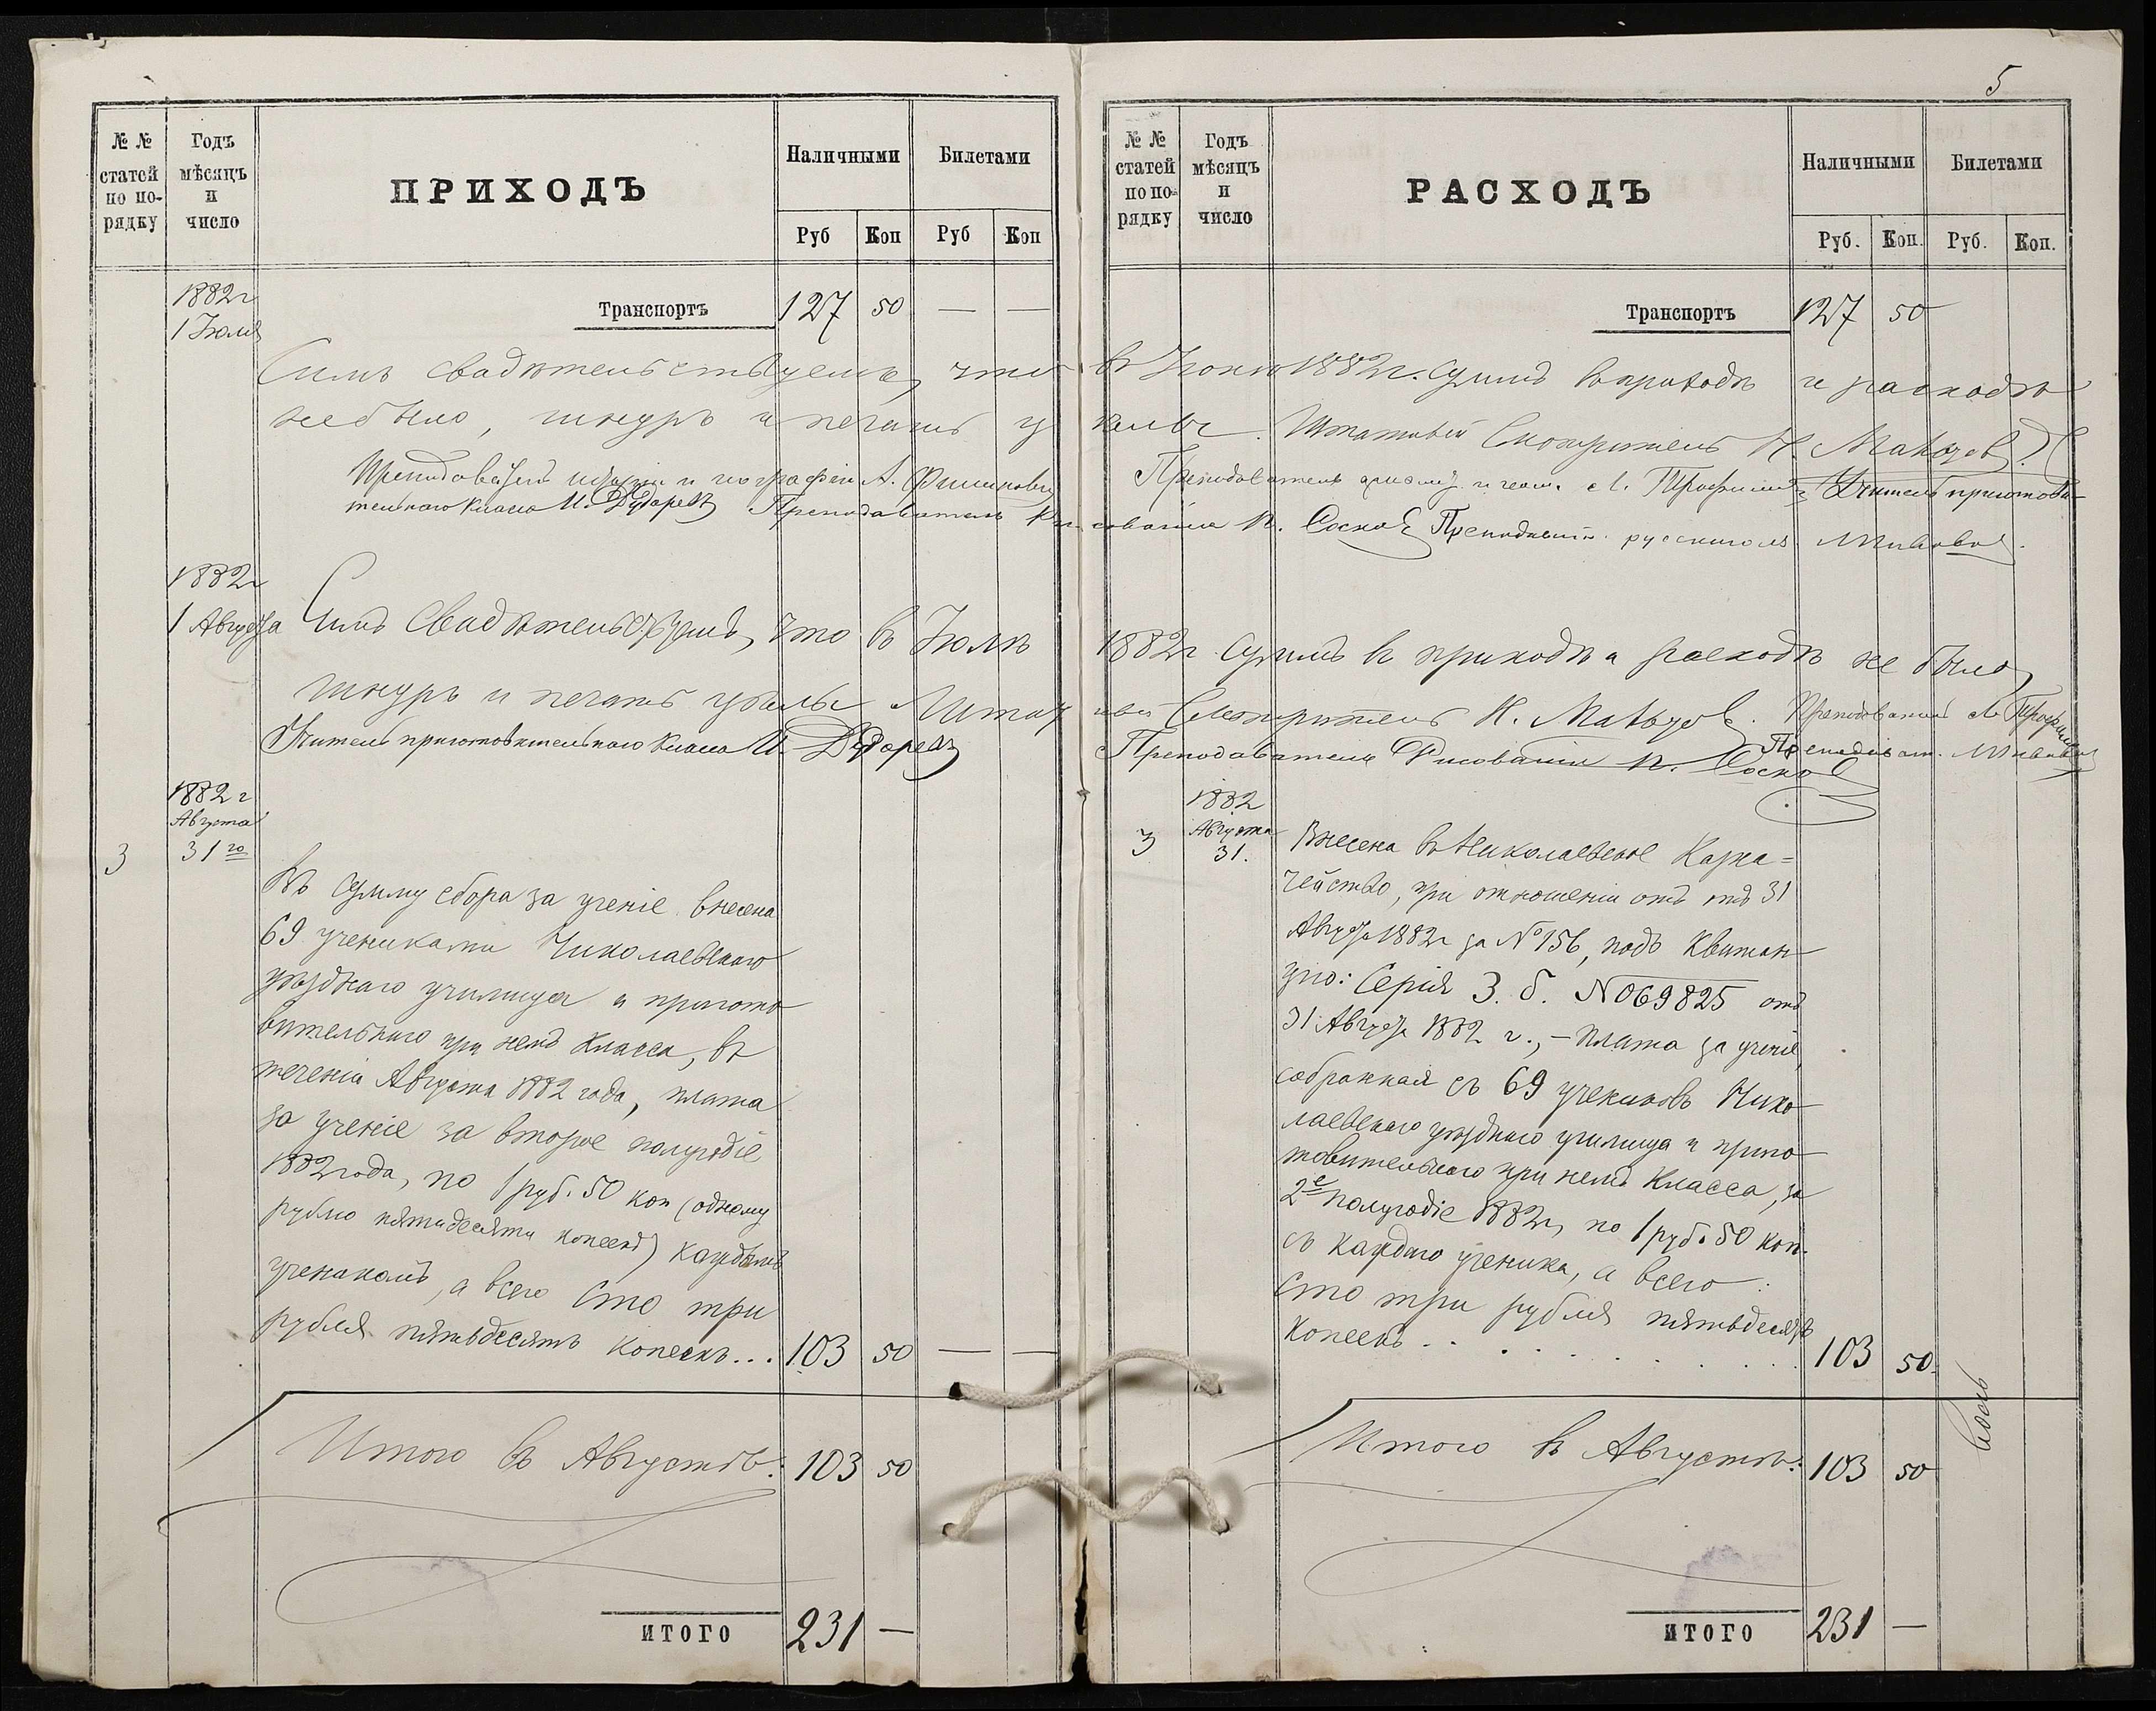 5
№ № статей по по-рядку
Годъ мѣсяцъ и число
ПРИХОДЪ
Наличными
Билетами
Руб
Коп
Руб
Коп
1882 г
1 Іюля
Транспортъ 127 50 — —
Симъ свидѣтельствуемъ, что
не было, шнуръ и печать ц
Преподаватель исторіи и географіи А.
тельнаго класса И. Дударевъ Преподаватель Ри
1882 г
1 Августа Симъ свидѣтельствуемъ, что въ Іюлѣ
шнуръ и печать цѣлы Штат
Учитель приготовительнаго класса И. Дударевъ
1882 г
Августа
3 31 го
Въ сумму сбора за ученіе внесена
69 учениками Николаевскаго
уѣзднаго училища и пригото
вительнаго при немъ класса, въ
теченіи Августа 1882 года, плата
за ученіе за второе полугодіе
1882 года, по 1 руб. 50 коп (одному
рублю пятидесяти копеекъ) каждымъ
ученикомъ, а всего сто три
рубля пятьдесятъ копеекъ... 103 50 — —
Итого въ Августѣ: 103 50
ИТОГО 231 —
№ № статей по по-рядку
Годъ мѣсяцъ и число
РАСХОДЪ
Наличными
Билетами
Руб.
Коп.
Руб.
Коп.
Транспортъ 127 50
въ Іюнѣ 1882 г. суммъ въ приходѣ и расходѣ
ѣлы. Штатный Смотритель Н.
Преподаватель и геом. Л. Учитель приготови-
сованія П. Преподават. русскаго яз
1882 г суммъ въ приходѣ и расходѣ не было,
ный Смотритель Н. Преподаватель Л.
Преподаватель Рисованія П. Преподават.
1882
3 Августа
31.
Внесена въ Николаевское Казна=
чейство, при отношеніи отъ отъ 31
Августа 1882 г за № 156, подъ Квитан-
цію: Серія З. б. № 069825 отъ
31 Августа 1882 г., – плата за ученіе,
собранная съ 69 учениковъ Нико-
лаевскаго уѣзднаго училища и приго-
товительнаго при немъ класса, за
2е полугодіе 1882 г, по 1 руб. 50 коп.
съ каждаго ученика, а всего:
сто три рубля пятьдесятъ
копеекъ . . . . . . . . . 103 50
Итого въ Августѣ: 103 50
ИТОГО 231 —